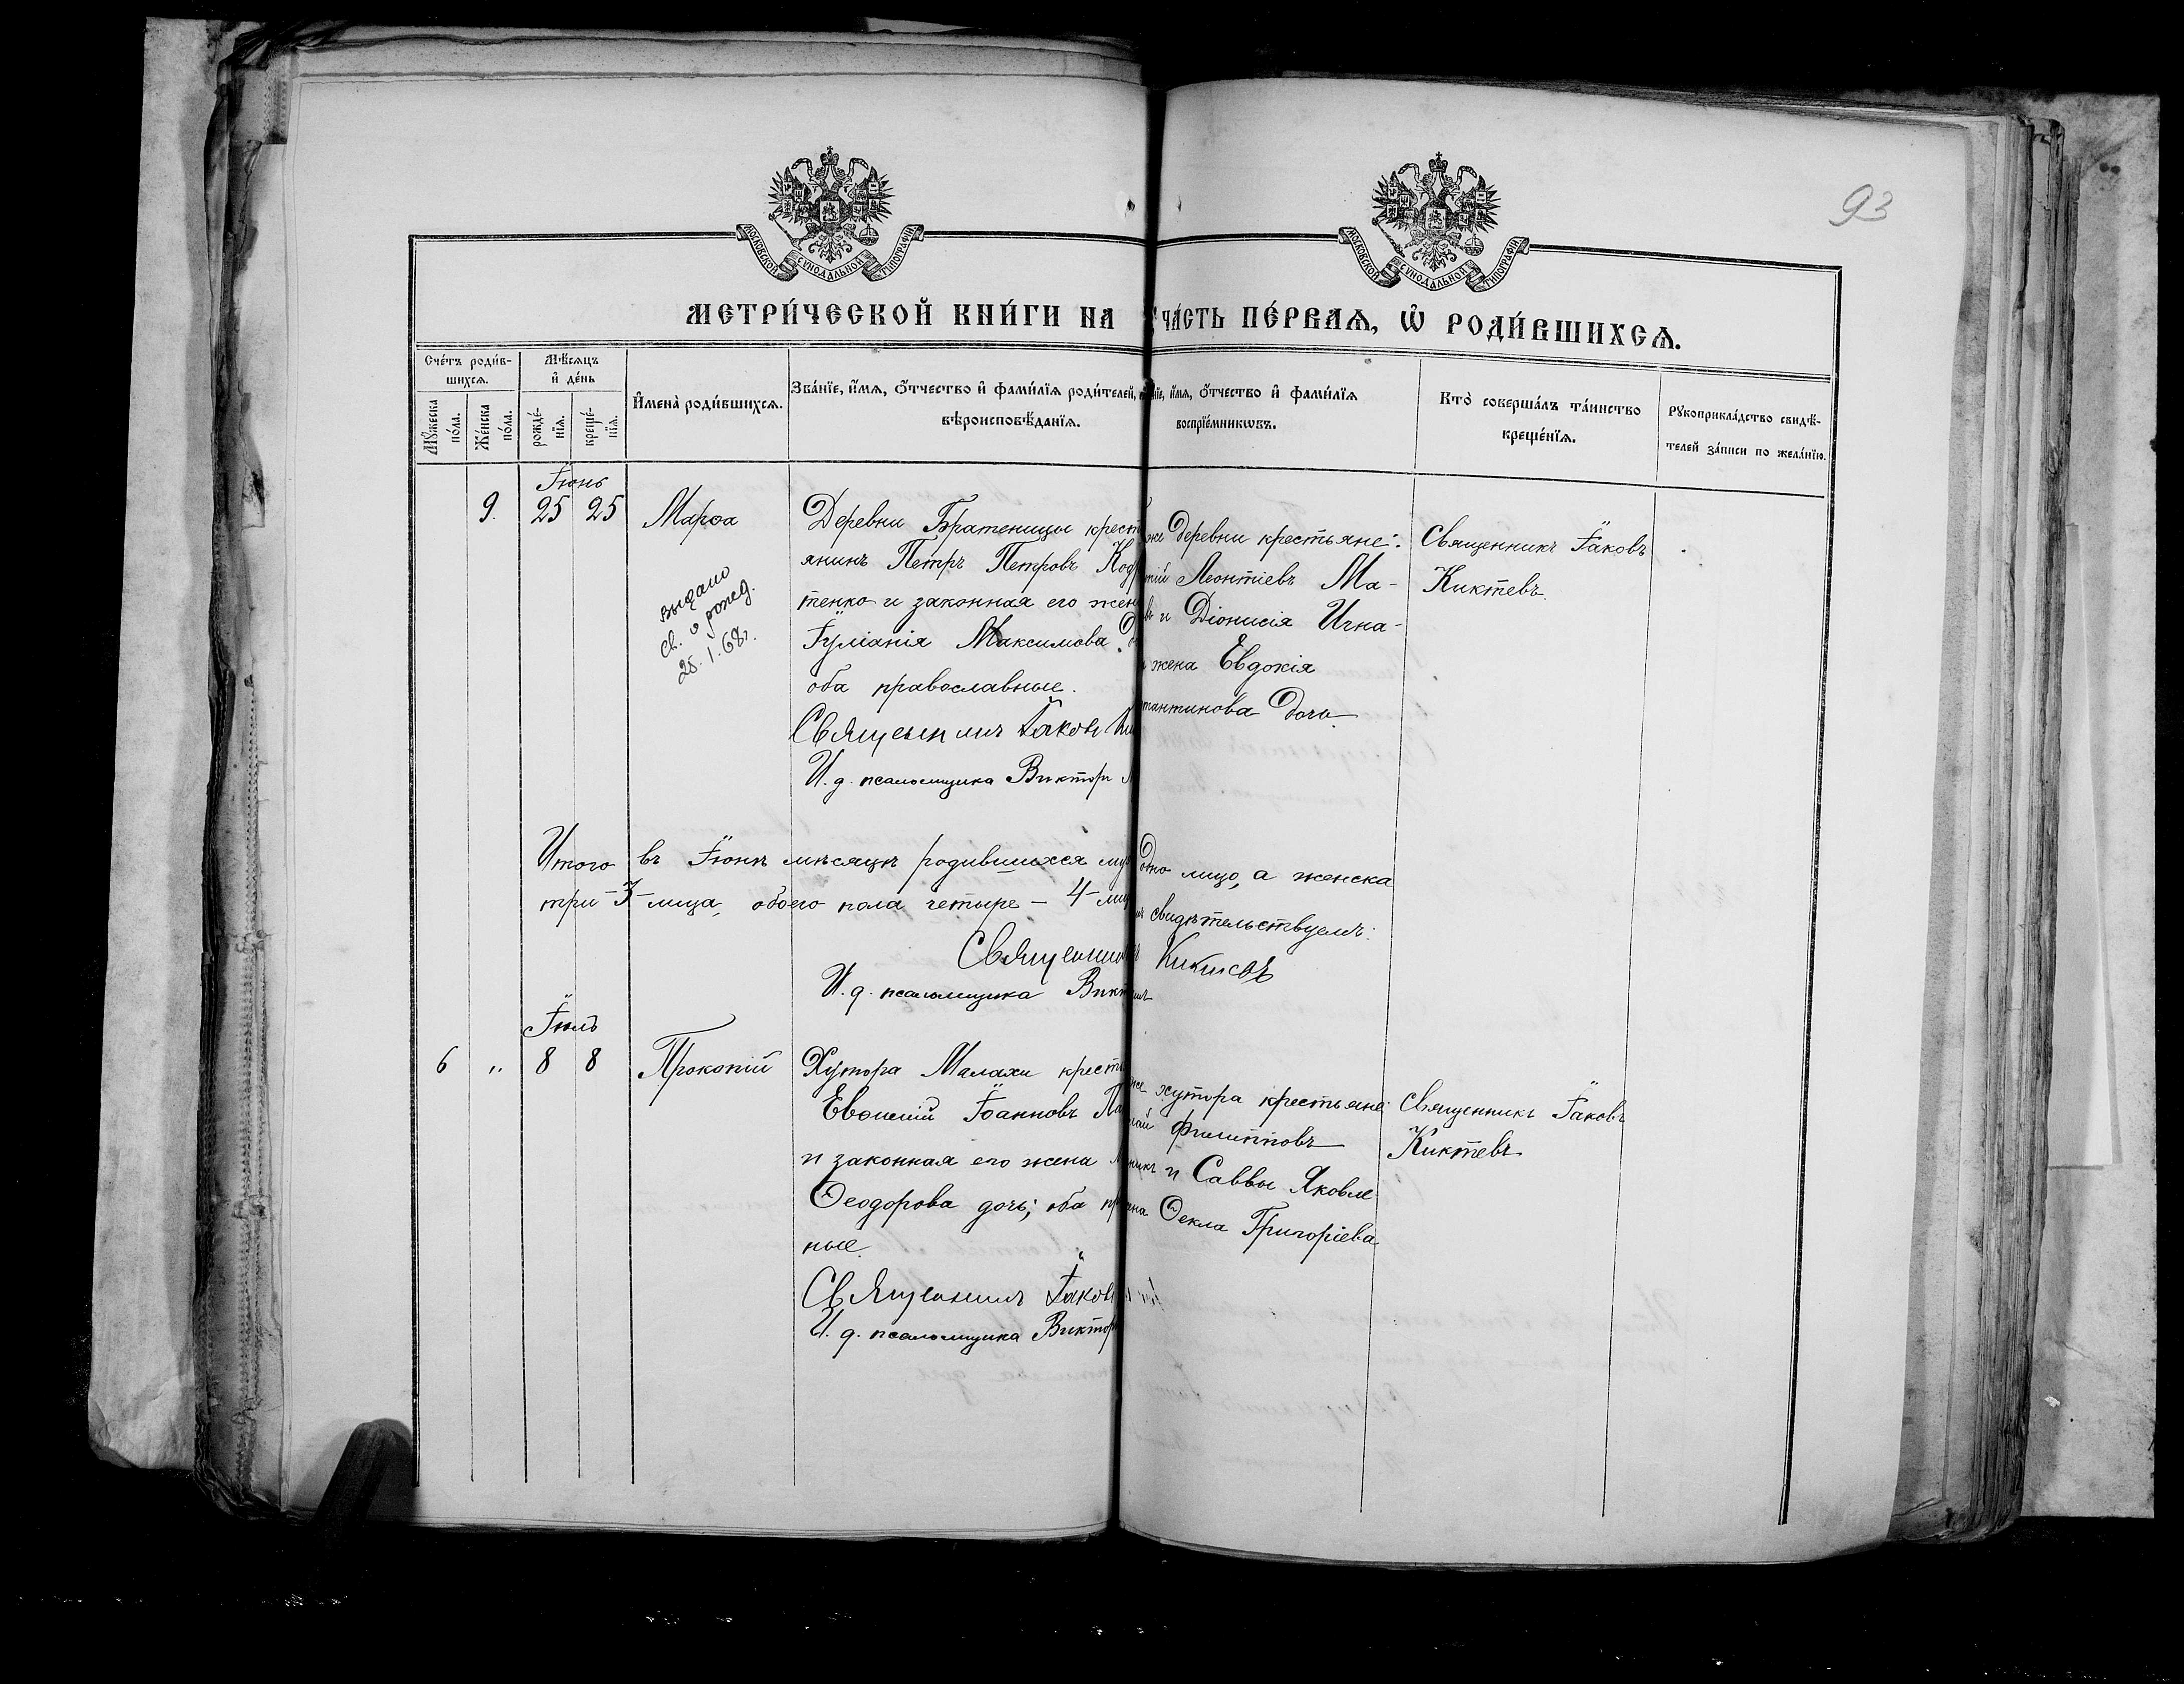 93
МОСКОВСКОЙ СѴНОДАЛЬНОЙ ТИПОГРАФІИ
МОСКОВСКОЙ СѴНОДАЛЬНОЙ ТИПОГРАФІИ
МЕТРИ́ЧЕСКОЙ КНИ́ГИ НА
ЧА́СТЬ ПЕ́РВАѦ, Ѡ҆ РОДИ́ВШИХСѦ.
Сче́тъ роди́в-
шихсѧ.
Мꙋ́жеска
по́ла.
Же́нска
по́ла.
Мѣ́сѧцъ
и҆ де́нь
рожде́-
нїѧ.
креще́-
нїѧ.
И҆мена̀ роди́вшихсѧ.
Зва́нїе, и҆́мѧ, ѻ҆́тчество и҆ фами́лїѧ роди́телей,
вѣроисповѣ́данїѧ.
и҆́мѧ, ѻ҆́тчество и҆ фами́лїѧ
воспрїе́мникѡвъ.
Кто̀ соверша́лъ та́инство
креще́нїѧ.
Рꙋкоприкла́дство свидѣ́-
телей за́писи по жела́нїю.
Іюнь
9. 25 25 Марѳа
выдано
св. о рожд.
25.1.68г.
Деревни Братеницы крест
янинъ Петръ Петровъ
тенко и законная его жен
Іуліанія Максимова
оба православные.
Священникъ Іаковъ
И. д. псаломщика Викторъ
же деревни крестьяне:
Леонтіевъ Ма-
и Діонисія Игна-
жена Евдокія
тантинова дочь.
Священникъ Іаковъ
Киктевъ.
Итого въ Іюнѣ мѣсяцѣ родившихся му
одно лицо, а женска
три -3- лица, обоего пола четыре - 4 - ли
свидѣтельствуемъ:
Священник
Киктевъ
И. д. псаломщика Викт
Іюль
6 „ 8 8 Прокопій
Хутора Малахи крест
Евѳимій Іоанновъ
и законная его жена
Ѳеодорова дочь; оба пр
ные.
Священникъ Іаковъ
И. д. псаломщика Виктор
же хутора крестьяне:
Филипповъ
и Саввы Яковле-
Ѳекла Григоріева
Священникъ Іаковъ
Киктевъ